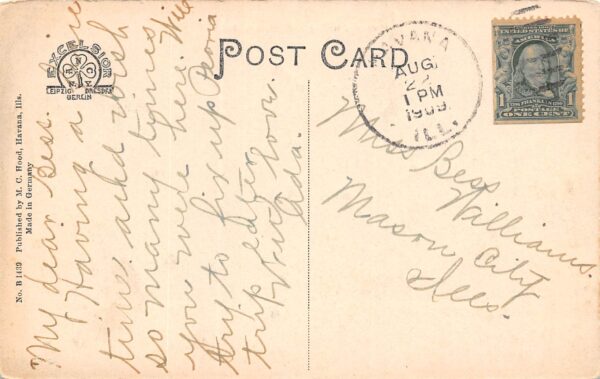 POST CARD
EXCELSIOR
LEIPZIG DRESDEN
BERLIN
No. B 1439 Published by M. C. Hood, Havana, Ills.
Made in Germany
HAVANA
AUG
22
1 PM
1909
ILL.
UNITED STATES
OF AMERICA
FRANKLIN
1 1
POSTAGE
ONE CENT
My dear Bess.
Having a
time and wish
so many times
you were here. Will
try to fix up Peoria
trip later.
With love.
Ada.
Miss Bess
Williams.
Mason City
Ills.